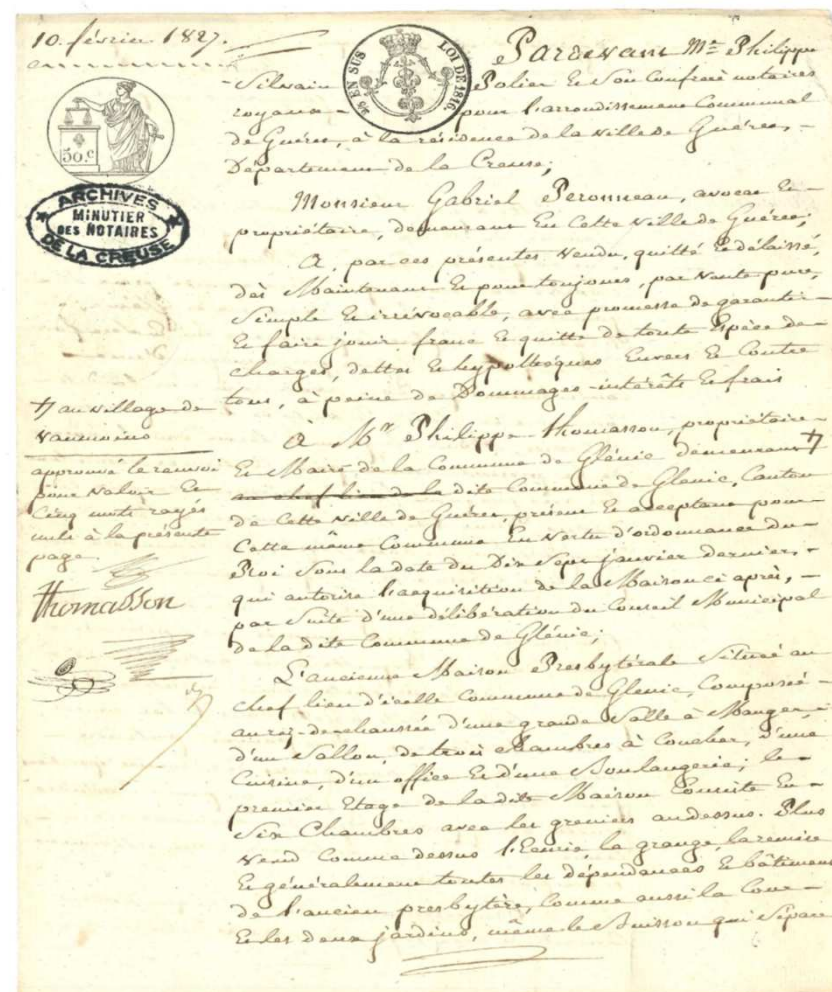 10. février 1827.
EN SUS
LOI DE 1816.
50.c
ARCHIVES
MINUTIER
DES NOTAIRES
DE LA CREUSE
Pardevant Me Philippe
Silvain Polier et son Confrere notaires
royaux - pour l'arrondissement Communal
de Guéret, à la résidence de la ville de Guéret, -
Département de la Creuse;
Monsieur Gabriel Peronneau, avocat et -
propriétaire, demeurant En cette ville de Guéret;
A, par ces présentes vendu, quitté et délaissé,
dès Maintenant et pour toujours, par vente pure,
Simple et irrévocable, avec promesse de garantir -
et faire jouir, franc et quitte de toute Espèce de -
charges, dettes et hypothèques Envers et Contre
tous, à peine de Dommages-intérêts et frais
À Mr Philippe Thomasson, propriétaire -
et Maire de la Commune de Glénic demeurant
au chef lieu de la dite Commune de Glenic, Canton
de Cette ville de Guéret, présent et acceptant pour -
Cette même Commune En vertu d'ordonnance du -
Roi Sous la date du Dix Sept janvier dernier, -
qui autorise l'acquisition de la Maison ci après, -
par Suite d'une délibération du Conseil Municipal
de la dite Commune de Glénic;
L'ancienne Maison Presbytérale Située au
chef lieu d'icelle Commune de Glenic, Composée -
au rez-de-chaussée d'une grande Salle à Manger, -
d'un Sallon, de trois chambres à Coucher, d'une
Cuisine, d'un office et d'une Boulangerie; le -
premier Etage de la dite Maison Consiste En -
Six Chambres avec les greniers au dessus. Plus
vend comme dessus l'Ecurie, la grange, la remise
et généralement toutes les dépendances et bâtiments
de l'ancien presbytère, Comme aussi la Cour -
et les deux jardins, même le Buisson qui Sépare
au village de
approuvé le renvoi
pour valoir et
Cinq mots rayés
nuls à la présente
page.
Thomasson